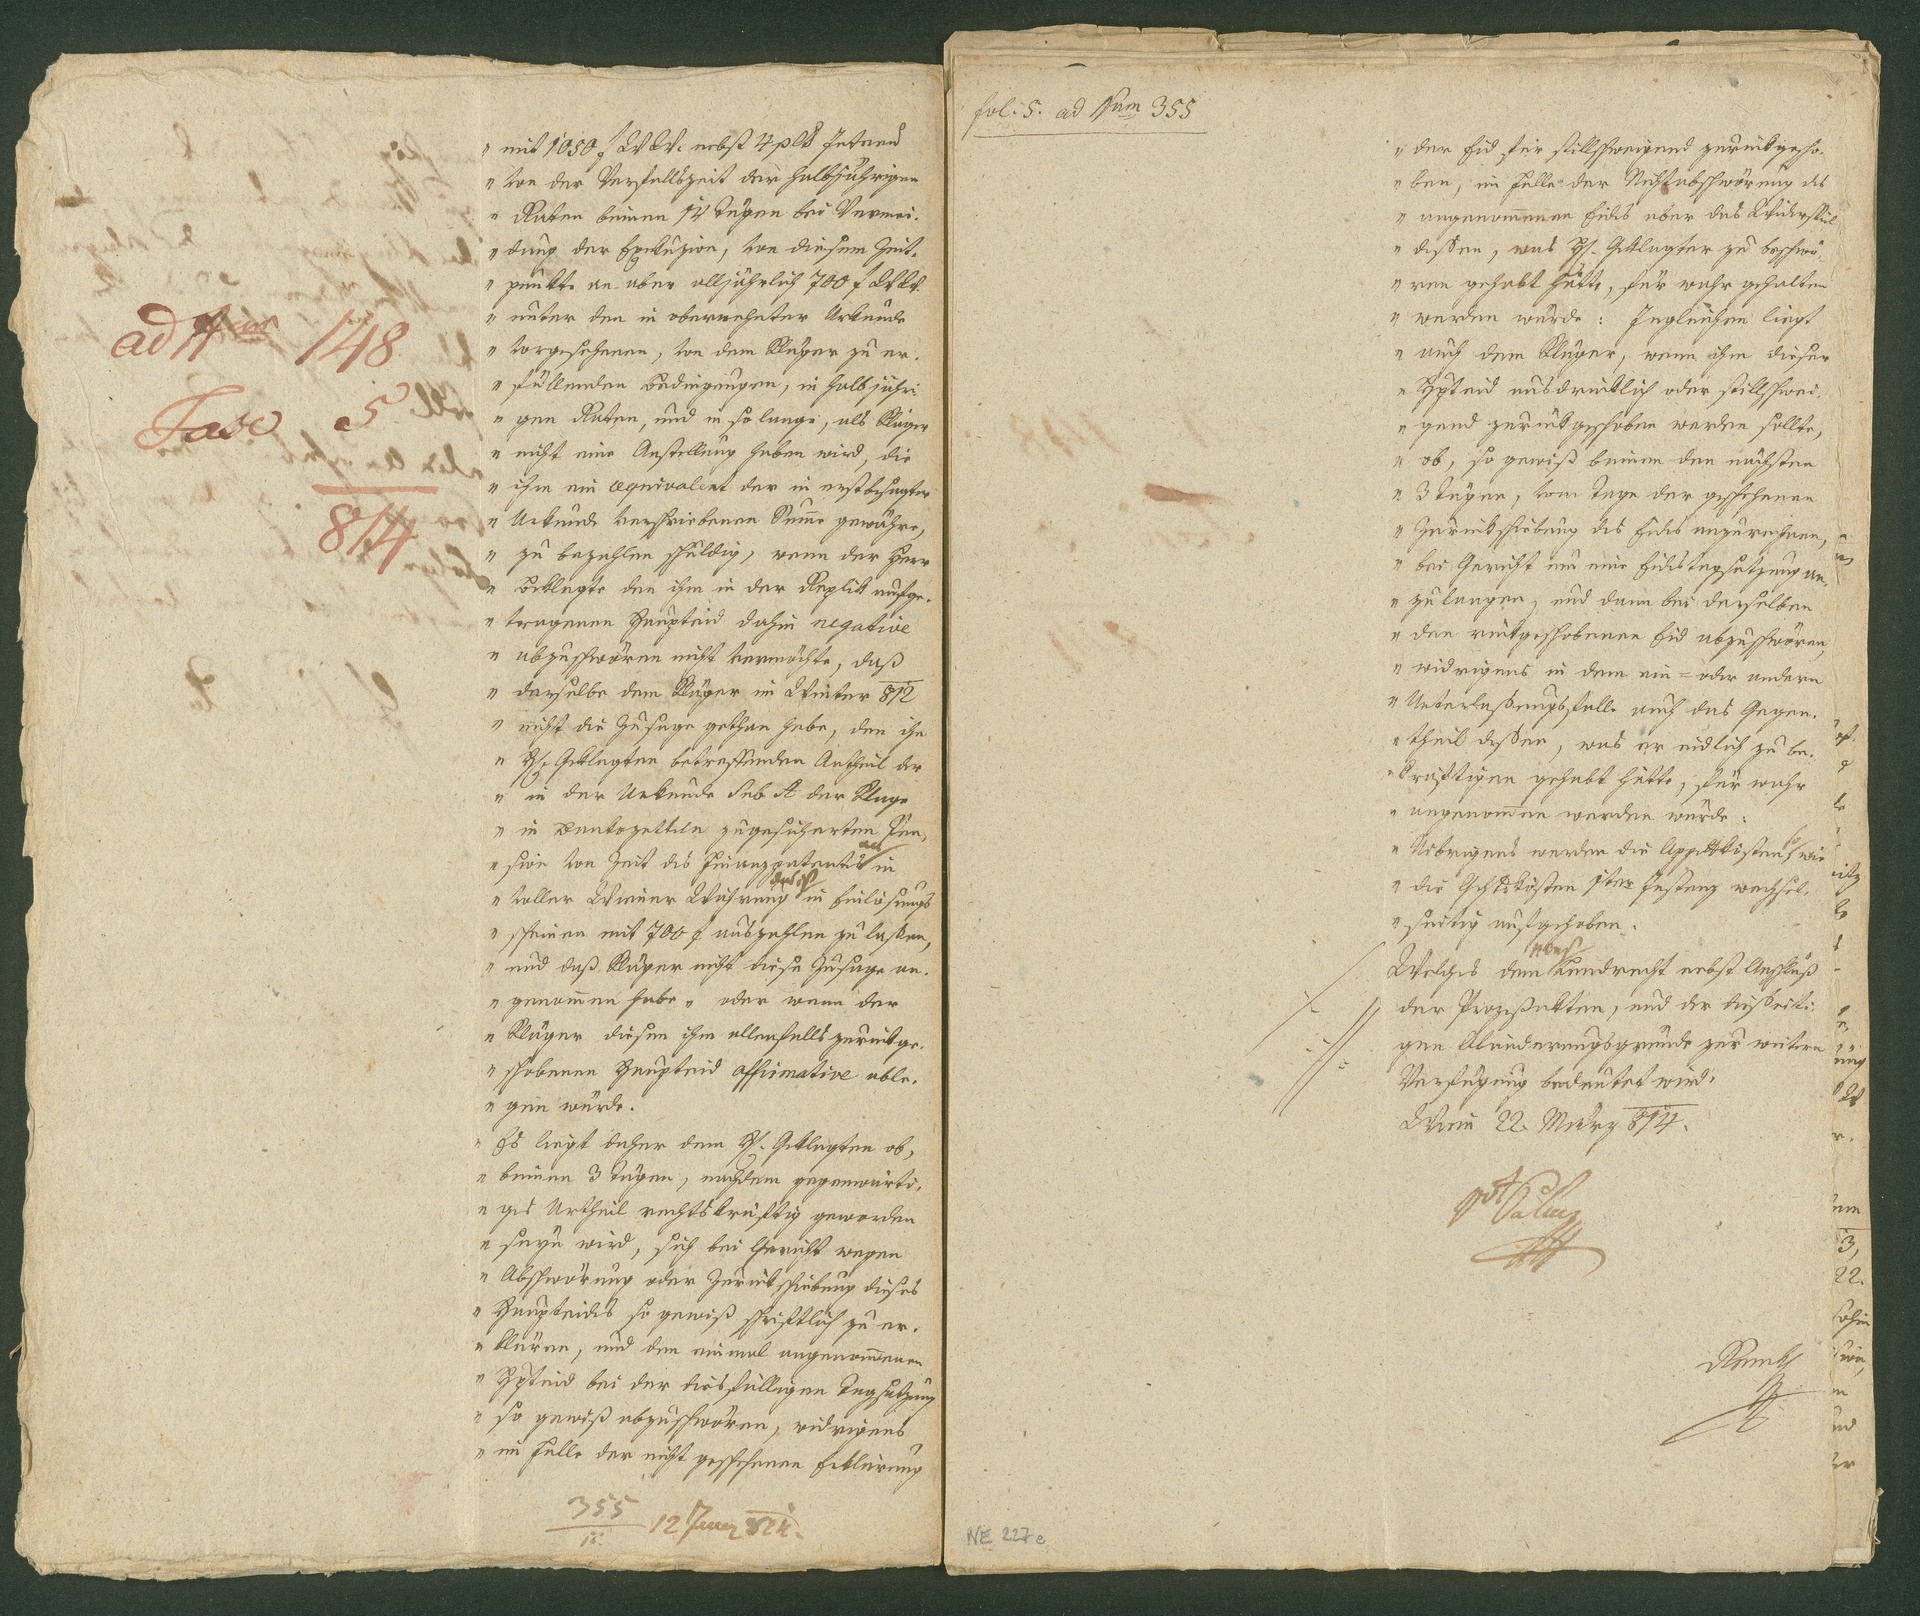 ad Num 148
Fasc 5
814
" mit 1050 f W.W. nebst 4 pCt Intreß
" von der Verfallszeit der halbjährigen
" Raten binnen 14 Tägen bei Vermei-
" dung der Exekuzion, von diesem Zeit-
" punkte an aber alljährlich 700 f W.W.
" unter den in oberwehnter Urkunde
" vorgesehenen, von dem Kläger zu er-
" füllenden Bedingungen, in halbjähri-
" gen Raten, und in so lange, als Kläger
" nicht eine Anstellung haben wird, die
" ihm ein equivalent der in erstbesagter
" Urkunde verschriebenen Summe gewähre,
" zu bezahlen schuldig, wenn der Herr
" Beklagte den ihm in der Replik aufge-
" tragenen Haupteid dahin negative
" abzuschwören nicht vermöchte, daß
" derselbe dem Kläger im Winter 812
" nicht die Zusage gethan habe, den ihn
" H. Geklagten betreffenden Antheil der
" in der Urkunde sub A der Klage
" in Bankozetteln zugesicherten Pen-
" sion von Zeit des Finanzpatents an in
" voller Wiener Währung das ist in Einlösungs
" scheinen mit 700 f auszahlen zu laßen,
" und daß Kläger nicht diese Zusage an-
" genommen habe " oder wenn der
" Kläger diesen ihm allenfalls zurückge-
" schobenen Haupteid affirmative able-
" gen würde.
" Es liegt daher dem H. Geklagten ob,
" binnen 3 Tägen, nachdem gegenwärti-
" ges Urtheil rechtskräftig geworden
" seyn wird, sich bei Gericht wegen
" Abschwörung oder Zurückschiebung dieses
" Haupteides so gewiß schriftlich zu er-
" klären, und den einmal angenommenen
" Hpteid bei der diesfälligen Tagsatzung
" so gewiß abzuschwören, widrigens
" im Falle der nicht geschehenen Erklärung
355 12
fol. 5. ad Num 355
" der Eid für stillschweigend zurückgescho-
" ben, im Falle der Nichtabschwörung des
" angenommenen Eides aber das Widerspiel
" dessen, was H. Geklagter zu beschwö-
" ren gehabt hätte, für wahr gehalten
" werden würde: Ingleichen liegt
" auch dem Kläger, wenn ihm dieser
" Hpteid ausdrücklich oder stillschwei-
" gend zurückgeschoben werden sollte,
" ob, so gewiß binnen den nächsten
" 3 Tägen, vom Tage der geschehenen
" Zurückschiebung des Eides anzurechnen,
" bei Gericht um eine Eidestagsatzung an-
" zulangen, und dann bei derselben
" den rückgeschobenen Eid abzuschwören,
" widrigens in dem ein= oder andern
" Unterlassungsfalle auch das Gegen-
" theil dessen, was er eidlich zu be-
" kräftigen gehabt hätte, für wahr
" angenommen werden würde.
" Uibrigens werden die Appellkösten so, wie
" die Gchtskösten 1ter Instanz wechsel-
" seitig aufgehoben.
Welches dem Landrecht nebst Anschluß
der Prozeßakten, und der diesseiti-
gen Abänderungsgründe zur weitern
Verfügung bedeutet wird.
Wien 22. März 814.
NE 227e